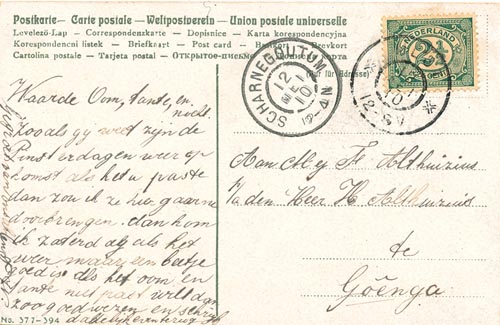 Postkarte – Carte postale – Weltpostverein – Union postale universelle
Levelező-Lap — Correspondenzkarte — Dopisnice — Karta korespondencyjna
Korespondencni listek — Briefkaart — Post card — Brefkort — Brevkort
Cartolina postale — Tarjeta postal — Открытое письмо
(Nur für Adresse)
SCHARNEGOUTUM
12
MEI
10
12-4N
NEDERLAND
2½
10
Waarde Oom, tante, en
nicht.
Zooals gy weet zyn de
Pinsterdagen weer op
komst als het u paste
dan zou ik ze hier gaarne
doorbrengen. dan kom
ik zaterdag als het
weer maar een
goed is als het oom en
tante niet past wilt dan
zoo goed wezen en schryf
dadelijk even terug
Aan Mej F. Althuizius
p/a den Heer H. Althuizius
te
Goënga
No. 377-394